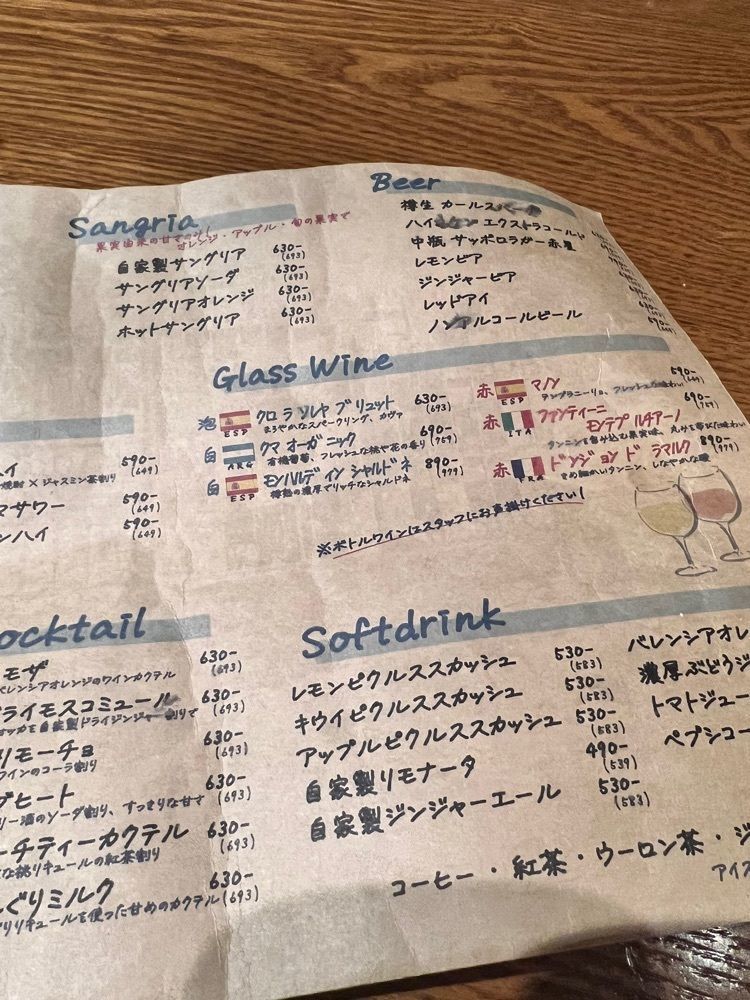 Sangria
果実由来の甘さのみ!
オレンジ・アップル・旬の果実で
自家製サングリア 630- (693)
サングリアソーダ 630- (693)
サングリアオレンジ 630- (693)
ホットサングリア 630- (693)
Beer
樽生 カールス
ハイ エクストラコールド
中瓶 サッポロラガー赤星
レモンビア
ジンジャービア
レッドアイ
ノンアルコールビール
Glass Wine
泡 ESP クロ ラ ソルヤ ブリュット 630- (693)
まろやかなスパークリング、カヴァ
白 ARG クマ オーガニック 690- (759)
有機葡萄、フレッシュな桃や花の香り
白 ESP モンハルディン シャルドネ 890- (979)
樽熟の濃厚でリッチなシャルドネ
赤 ESP マノン 590- (649)
テンプラニーリョ、フレッシュな味わい
赤 ITA ファンティーニ モンテプルチアーノ 690- (759)
タンニンを包み込む果実味、丸みを帯びた味わい
赤 FRA ドンジョン ド ラマルク 890- (979)
きめ細かいタンニン、しなやかな酸
※ボトルワインはスタッフにお声掛けください!
ハイ 590- (649)
焼酎×ジャスミン茶割り
マサワー 590- (649)
ンハイ 590- (649)
ocktail
モザ 630- (693)
バレンシアオレンジのワインカクテル
ライモスコミュール 630- (693)
オッカを自家製ドライジンジャー割りで
リモーチョ 630- (693)
ワインのコーラ割り
グヒート 630- (693)
リー酒のソーダ割り、すっきりな甘さ
ーチティーカクテル 630- (693)
な桃リキュールの紅茶割り
ぐりミルク 630- (693)
リリキュールを使った甘めのカクテル
Softdrink
レモンピクルススカッシュ 530- (583)
キウイピクルススカッシュ 530- (583)
アップルピクルススカッシュ 530- (583)
自家製リモナータ 490- (539)
自家製ジンジャーエール 530- (583)
バレンシアオレ
濃厚ぶどうジ
トマトジュー
ペプシコー
コーヒー・紅茶・ウーロン茶・ジ
アイス